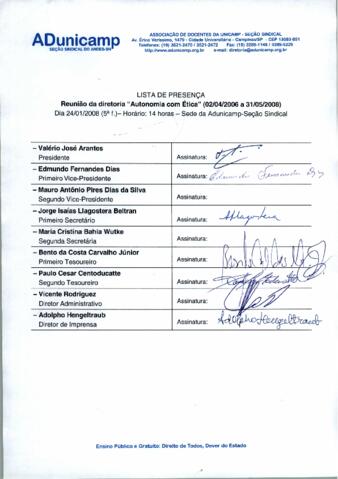 ADunicamp
SEÇÃO SINDICAL DO ANDES-SN
ASSOCIAÇÃO DE DOCENTES DA UNICAMP - SEÇÃO SINDICAL
Av. Érico Veríssimo, 1479 - Cidade Universitária - Campinas/SP - CEP 13083-851
Telefones: (19) 3521-2470 / 3521-2472 Fax: (19)
http://www.adunicamp.org.br e-mail: diretoria@adunicamp.org.br
LISTA DE PRESENÇA
Reunião da diretoria "Autonomia com Ética" (02/04/2006 a 31/05/2008)
Dia 24/01/2008 (5ª f.)– Horário: 14 horas – Sede da Adunicamp-Seção Sindical
– Valério José Arantes
Presidente Assinatura:
– Edmundo Fernandes Dias
Primeiro Vice-Presidente Assinatura: Edmundo Fernandes Dias
– Mauro Antônio Pires Dias da Silva
Segundo Vice-Presidente Assinatura:
– Jorge Isaías Llagostera Beltran
Primeiro Secretário Assinatura: Llagostera
– Maria Cristina Bahia Wutke
Segunda Secretária Assinatura:
– Bento da Costa Carvalho Júnior
Primeiro Tesoureiro Assinatura:
– Paulo Cesar Centoducatte
Segundo Tesoureiro Assinatura:
– Vicente Rodriguez
Diretor Administrativo Assinatura:
– Adolpho Hengeltraub
Diretor de Imprensa Assinatura: Adolpho Hengeltraub
Ensino Público e Gratuito: Direito de Todos, Dever do Estado